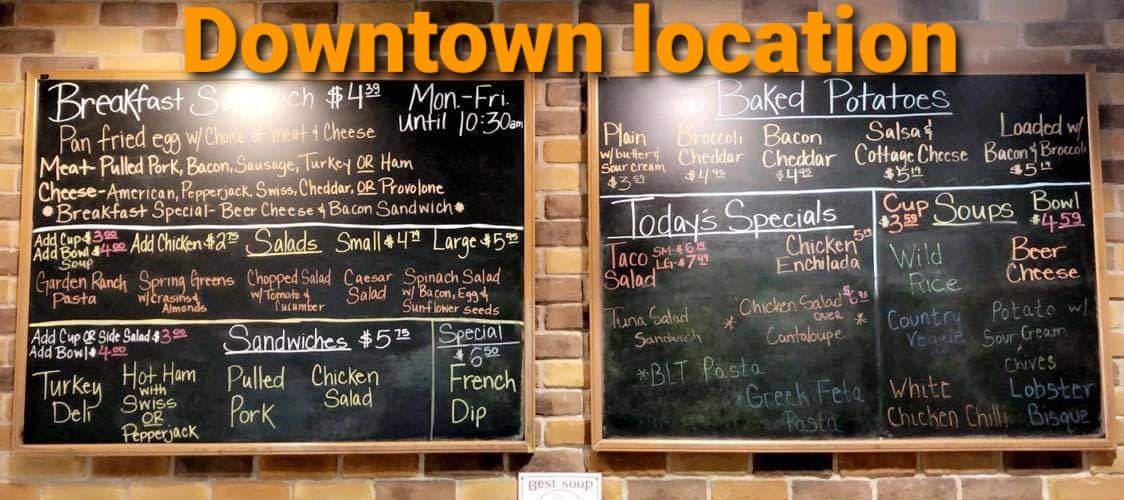 Downtown location
Breakfast Sandwich $4.39
Mon.-Fri.
until 10:30am
Pan fried egg w/ Choice of meat & Cheese
Meat- Pulled Pork, Bacon, Sausage, Turkey OR Ham
Cheese- American, Pepperjack, Swiss, Cheddar, OR Provolone
*Breakfast Special- Beer Cheese & Bacon Sandwich*
Add Cup $3.00
Add Bowl $4.00
Soup
Add Chicken $2.75
Salads
Small $4.79
Large $5.95
Garden Ranch
Pasta
Spring Greens
w/ Crasins &
Almonds
Chopped Salad
w/ Tomato &
Cucumber
Caesar
Salad
Spinach Salad
w/ Bacon, Egg &
Sunflower Seeds
Add Cup OR Side Salad $3.00
Add Bowl $4.00
Sandwiches $5.75
Turkey
Deli
Hot Ham
with
Swiss
OR
Pepperjack
Pulled
Pork
Chicken
Salad
Special
$6.50
French
Dip
Baked Potatoes
Plain
w/ butter &
Sour cream
$3.59
Broccoli
Cheddar
$4.95
Bacon
Cheddar
$4.95
Salsa &
Cottage Cheese
$5.19
Loaded w/
Bacon & Broccoli
$5.19
Today's Specials
Taco
Salad
SM-$6.19
LG-$7.49
Chicken 5.19
Enchilada
Tuna Salad
Sandwich
* Chicken Salad $6.95
over *
Cantaloupe
*BLT Pasta
*Greek Feta
Pasta
Cup
$3.59
Soups
Bowl
$4.59
Wild
Rice
Beer
Cheese
Country
Veggie
Potato w/
Sour Cream
Chives
White
Chicken Chilli
Lobster
Bisque
Best soup